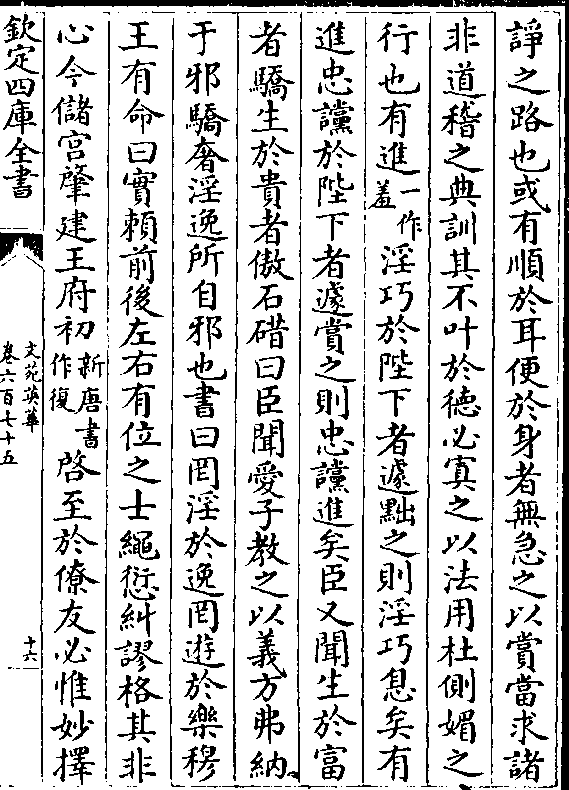 諍之路也或有順於耳便於身者無急之以賞當求諸
非道稽之典訓其不叶於德必寘之以法用杜側媚之
行也有進一作羞淫巧於陛下者遽黜之則淫巧息矣有
進忠讜於陛下者遽賞之則忠讜進矣臣又聞生於富
者驕生於貴者傲石碏曰臣聞愛子教之以義方弗納
于邪驕奢淫逸所自邪也書曰罔淫於逸罔遊於樂穆
王有命曰實賴前後左右有位之士繩愆糾謬格其非
心今儲宮肇建王府初新唐書作復啓至於僚友必惟妙擇
欽定四庫全書
文苑英華
卷六百七十五
十六